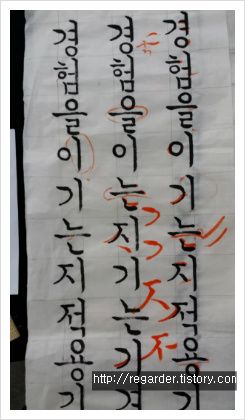 경험을이기는지적용기
경험을이는지기는기
경험을이기는지적용기
http://regarder.tistory.com